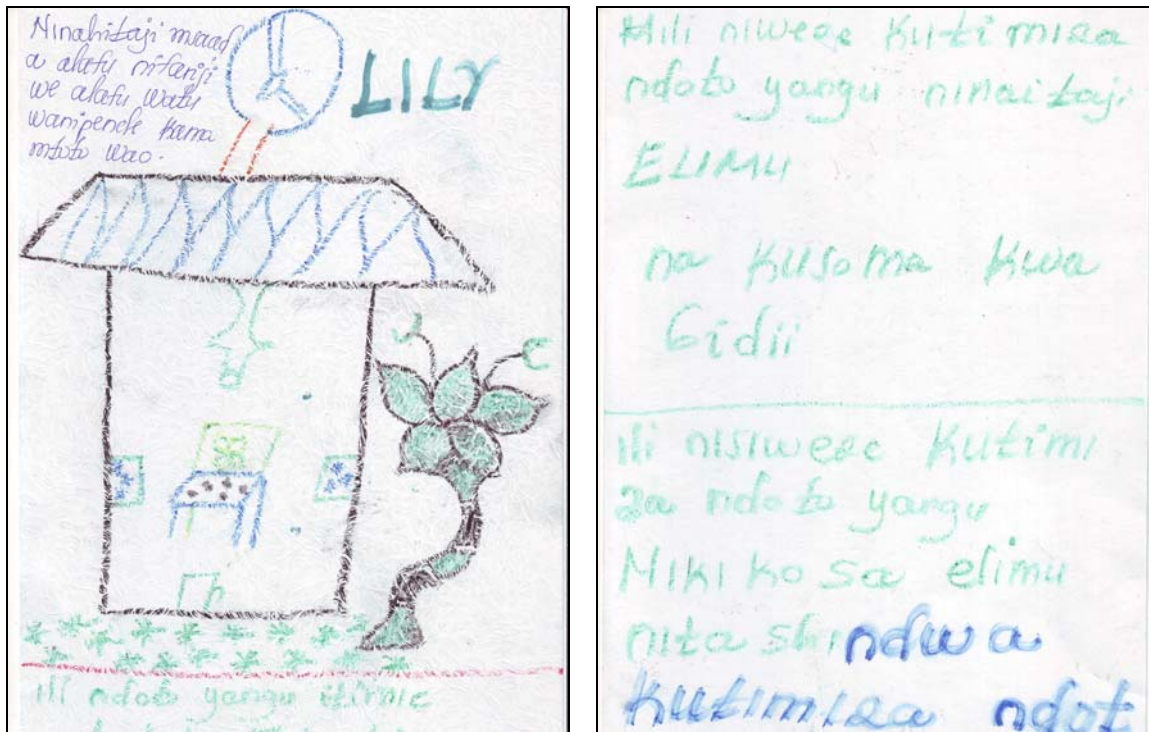 Ninahitaji msaad
a alafu nifariji
we alafu watu
wanipende kama
mtoto wao.
LILY
ili ndoto yangu itimie
Hili niweze kutimiza
ndoto yangu ninaitaji
ELIMU
na kusoma kwa
Gidii
ili nisiweze kutimi
za ndoto yangu
Nikikosa elimu
nita shindwa
kutimiza ndot